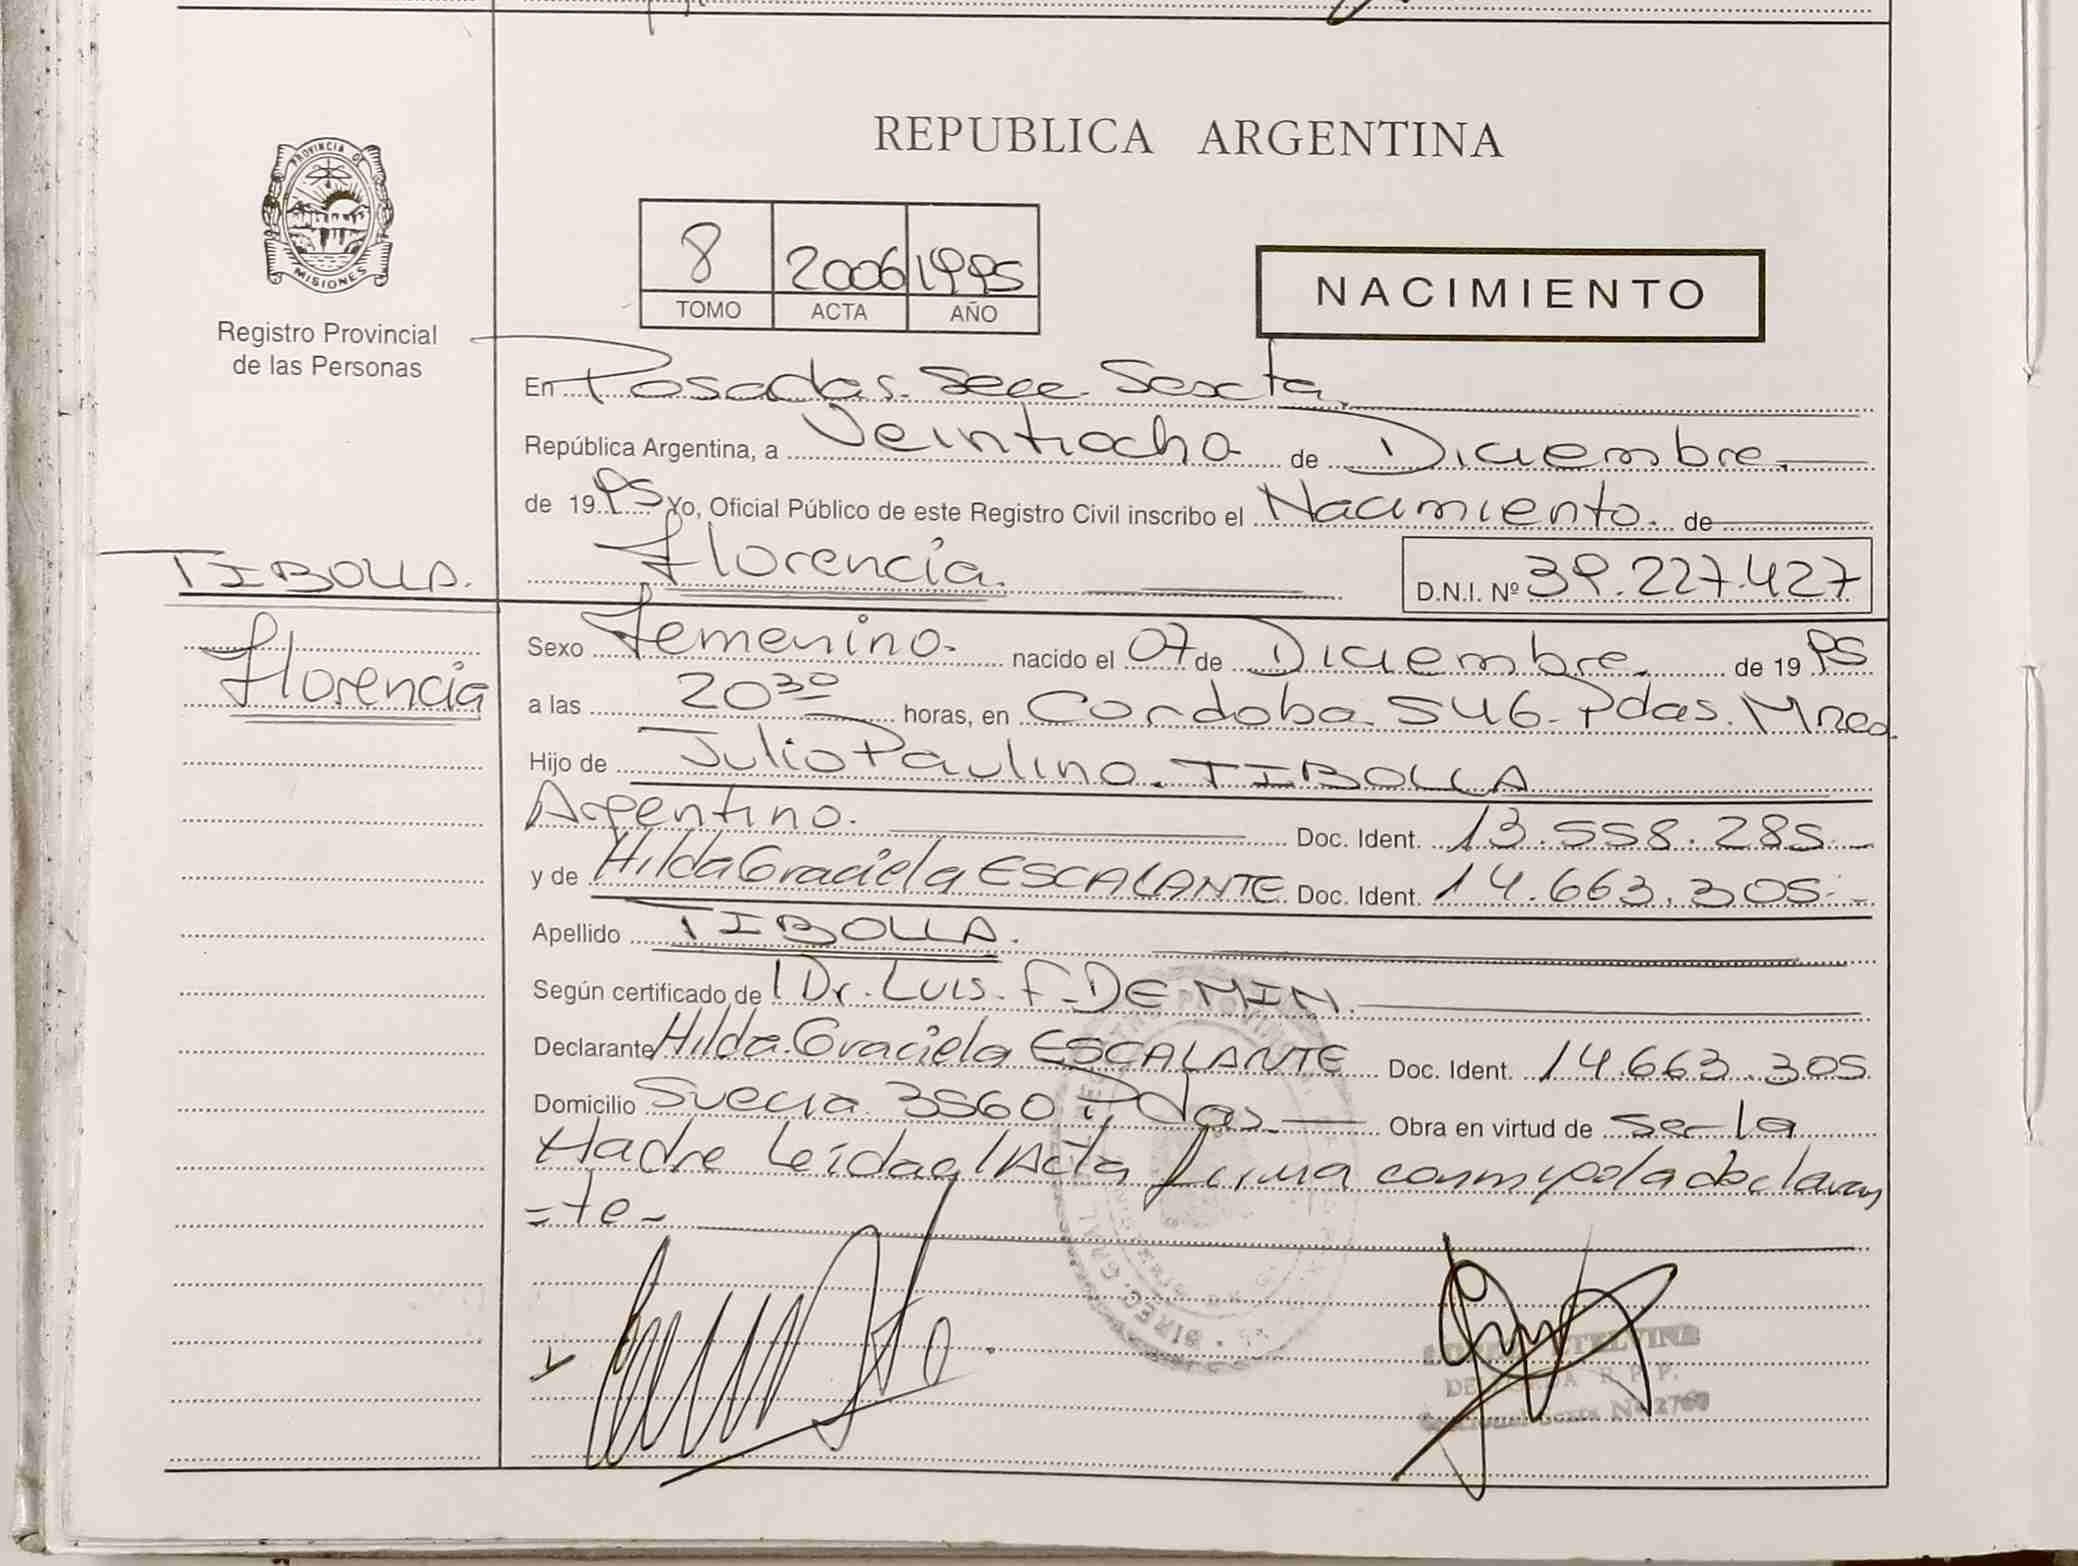 PROVINCIA DE
MISIONES
Registro Provincial
de las Personas
REPUBLICA ARGENTINA
8 2006 1995
TOMO ACTA AÑO
NACIMIENTO
En Posadas. Secc. Sexta.
República Argentina, a Veintiocho de Diciembre.
de 1995 Yo, Oficial Público de este Registro Civil inscribo el Nacimiento. de
TIBOLLA. Florencia. D.N.I. Nº 39.227.427
Florencia
Sexo Femenino. nacido el 07 de Diciembre. de 1995
a las 20 30 horas, en Cordoba 546. Pdas. Mnes
Hijo de Julio Paulino. TIBOLLA
Argentino. Doc. Ident. 13.558.285.
y de Hilda Graciela ESCALANTE Doc. Ident. 14.663.305.
Apellido TIBOLLA.
Según certificado de Dr. Luis. F. DE MIN.
Declarante Hilda Graciela ESCALANTE Doc. Ident. 14.663.305
Domicilio Suecia 3560 Pdas. Obra en virtud de ser la
Madre Leída el Acta firma conmigo la declaran
=te-
DIREC. GRAL.
R. P. P.
Seccional Sexta Nº